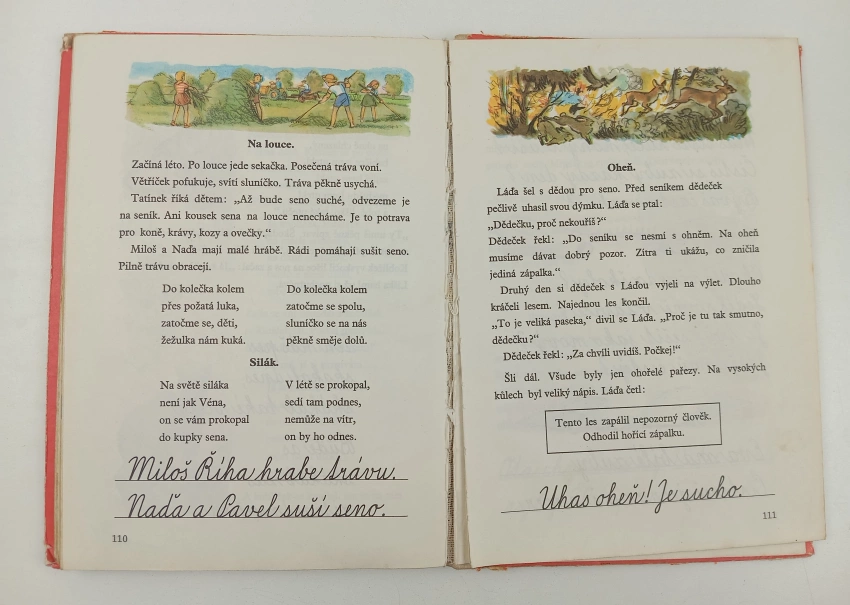 Na louce.
Začíná léto. Po louce jede sekačka. Posečená tráva voní.
Větříček pofukuje, svítí sluníčko. Tráva pěkně usychá.
Tatínek říká dětem: „Až bude seno suché, odvezeme je
na seník. Ani kousek sena na louce nenecháme. Je to potrava
pro koně, krávy, kozy a ovečky.“
Miloš a Naďa mají malé hrábě. Rádi pomáhají sušit seno.
Pilně trávu obracejí.
Do kolečka kolem
přes požatá luka,
zatočme se, děti,
žežulka nám kuká.
Do kolečka kolem
zatočme se spolu,
sluníčko se na nás
pěkně směje dolů.
Silák.
Na světě siláka
není jak Véna,
on se vám prokopal
do kupky sena.
V létě se prokopal,
sedí tam podnes,
nemůže na vítr,
on by ho odnes.
Miloš Říha hrabe trávu.
Naďa a Pavel suší seno.
110
Oheň.
Láďa šel s dědou pro seno. Před seníkem dědeček
pečlivě uhasil svou dýmku. Láďa se ptal:
„Dědečku, proč nekouříš?“
Dědeček řekl: „Do seníku se nesmí s ohněm. Na oheň
musíme dávat dobrý pozor. Zítra ti ukážu, co zničila
jediná zápalka.“
Druhý den si dědeček s Láďou vyjeli na výlet. Dlouho
kráčeli lesem. Najednou les končil.
„To je veliká paseka,“ divil se Láďa. „Proč je tu tak smutno,
dědečku?“
Dědeček řekl: „Za chvíli uvidíš. Počkej!“
Šli dál. Všude byly jen ohořelé pařezy. Na vysokých
kůlech byl veliký nápis. Láďa četl:
Tento les zapálil nepozorný člověk.
Odhodil hořící zápalku.
Uhas oheň! Je sucho.
111